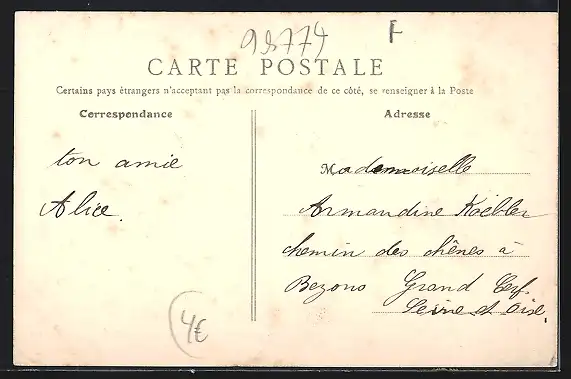 98774
F
CARTE POSTALE
Certains pays étrangers n'acceptant pas la correspondance de ce côté, se renseigner à la Poste
Correspondance
Adresse
ton amie
Alice.
Mademoiselle
Armandine Koebler
chemin des chênes à
Bezons Grand Cerf.
Seine et Oise.
4€